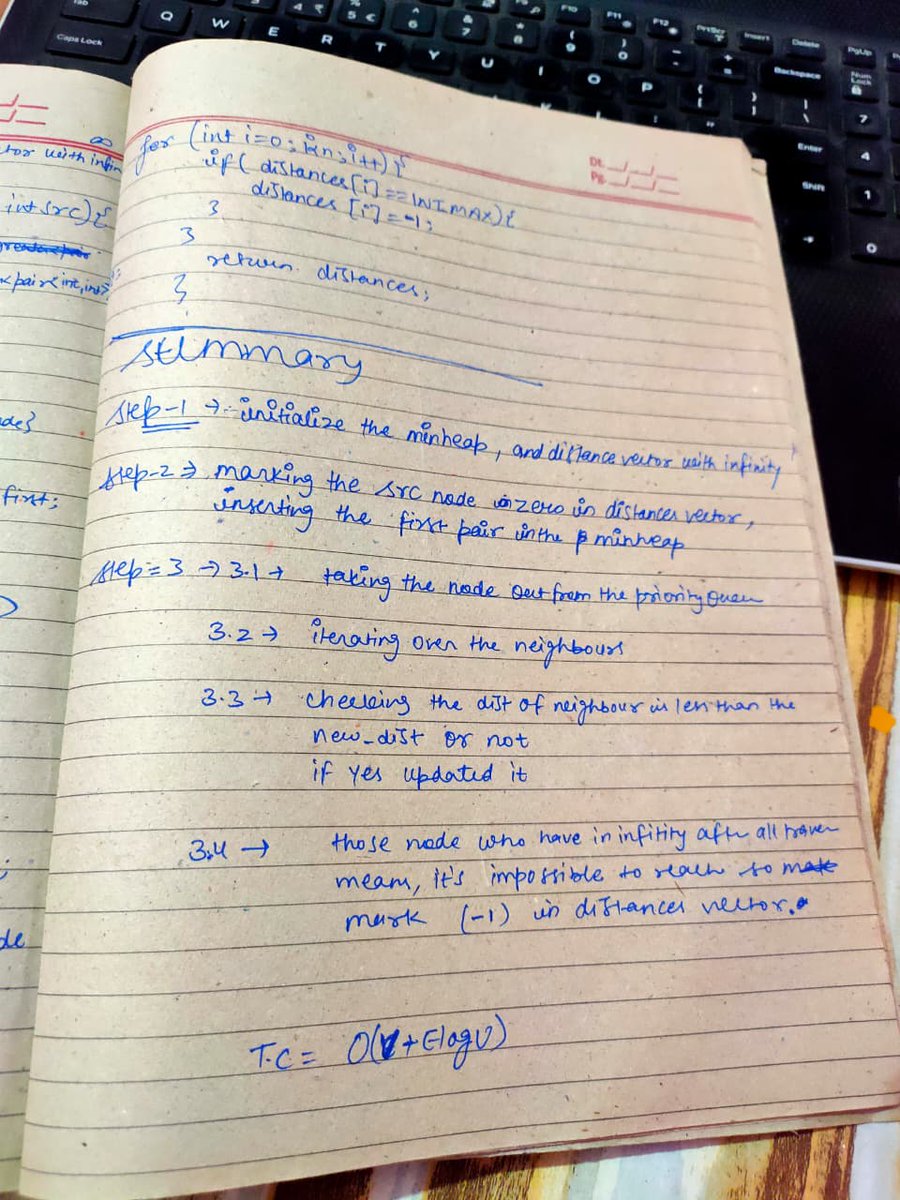 for (int i=0; i<n; i++) {
if( distances[i] == INTMAX) {
distances [i] = -1;
}
}
return distances;
}
Dt.
Pg.
Summary
Step-1 → initialize the minheap, and distance vector with infinity
Step-2 ⇒ marking the src node zero in distances vector,
inserting the first pair in the minheap
Step=3 → 3.1 → taking the node out from the priority
3.2 → iterating over the neighbours
3.3 → checking the dist of neighbour is less than the
new_dist or not
if yes updated it
3.4 → those node who have in infitity after all
means, it's impossible to reach so
mark (-1) in distances vector.
T.C = O(V + ElogV)
∞
tor with infin
int src) {
<pair<int, int>
first;
Tab
Caps Lock
Q
W
E
R
T
Y
U
I
O
P
{
[
}
]
|
\
4 ₹
5 €
^
6
&
7
*
8
(
9
)
0
_
-
+
=
F10
F11
F12
PrtScr
Insert
Delete
PgUp
Backspace
Num
Lock
Enter
Shift
7
4
1
0